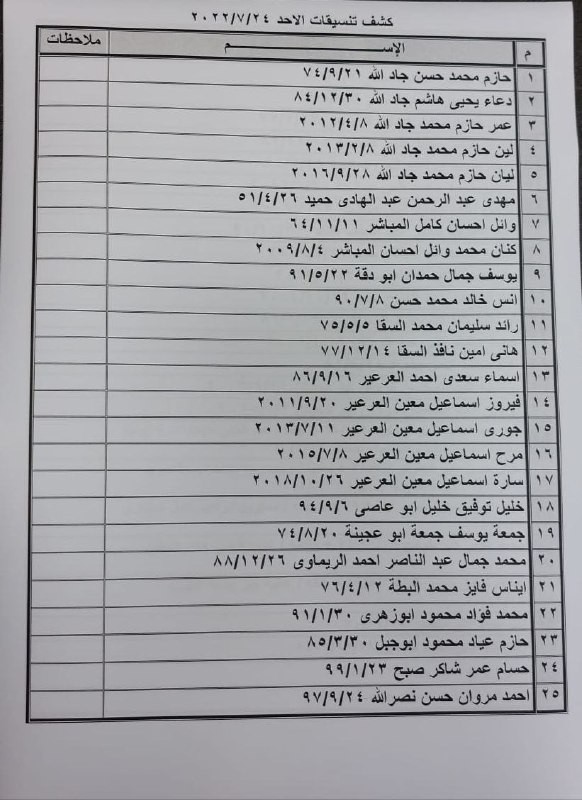 كشف تنسيقات الاحد ٢٠٢٢/٧/٢٤
م الإســـــــم ملاحظات
١ حازم محمد حسن جاد الله ٧٤/٩/٢١
٢ دعاء يحيى هاشم جاد الله ٨٤/١٢/٣٠
٣ عمر حازم محمد جاد الله ٢٠١٢/٤/٨
٤ لين حازم محمد جاد الله ٢٠١٣/٢/٨
٥ ليان حازم محمد جاد الله ٢٠١٦/٩/٢٨
٦ مهدى عبد الرحمن عبد الهادى حميد ٥١/٤/٢٦
٧ وائل احسان كامل المباشر ٦٤/١١/١١
٨ كنان محمد وائل احسان المباشر ٢٠٠٩/٨/٤
٩ يوسف جمال حمدان ابو دقة ٩١/٥/٢٢
١٠ انس خالد محمد حسن ٩٠/٧/٨
١١ رائد سليمان محمد السقا ٧٥/٥/٥
١٢ هانى امين نافذ السقا ٧٧/١٢/١٤
١٣ اسماء سعدى احمد العرعير ٨٦/٩/١٦
١٤ فيروز اسماعيل معين العرعير ٢٠١١/٩/٢٠
١٥ جورى اسماعيل معين العرعير ٢٠١٣/٧/١١
١٦ مرح اسماعيل معين العرعير ٢٠١٥/٧/٨
١٧ سارة اسماعيل معين العرعير ٢٠١٨/١٠/٢٦
١٨ خليل توفيق خليل ابو عاصى ٩٤/٩/٦
١٩ جمعة يوسف جمعة ابو عجينة ٧٤/٨/٢٠
٢٠ محمد جمال عبد الناصر احمد الريماوى ٨٨/١٢/٢٦
٢١ ايناس فايز محمد البطة ٧٦/٤/١٢
٢٢ محمد فؤاد محمود ابوزهرى ٩١/١/٣٠
٢٣ حازم عياد محمود ابوجبل ٨٥/٣/٣٠
٢٤ حسام عمر شاكر صبح ٩٩/١/٢٣
٢٥ احمد مروان حسن نصرالله ٩٧/٩/٢٤